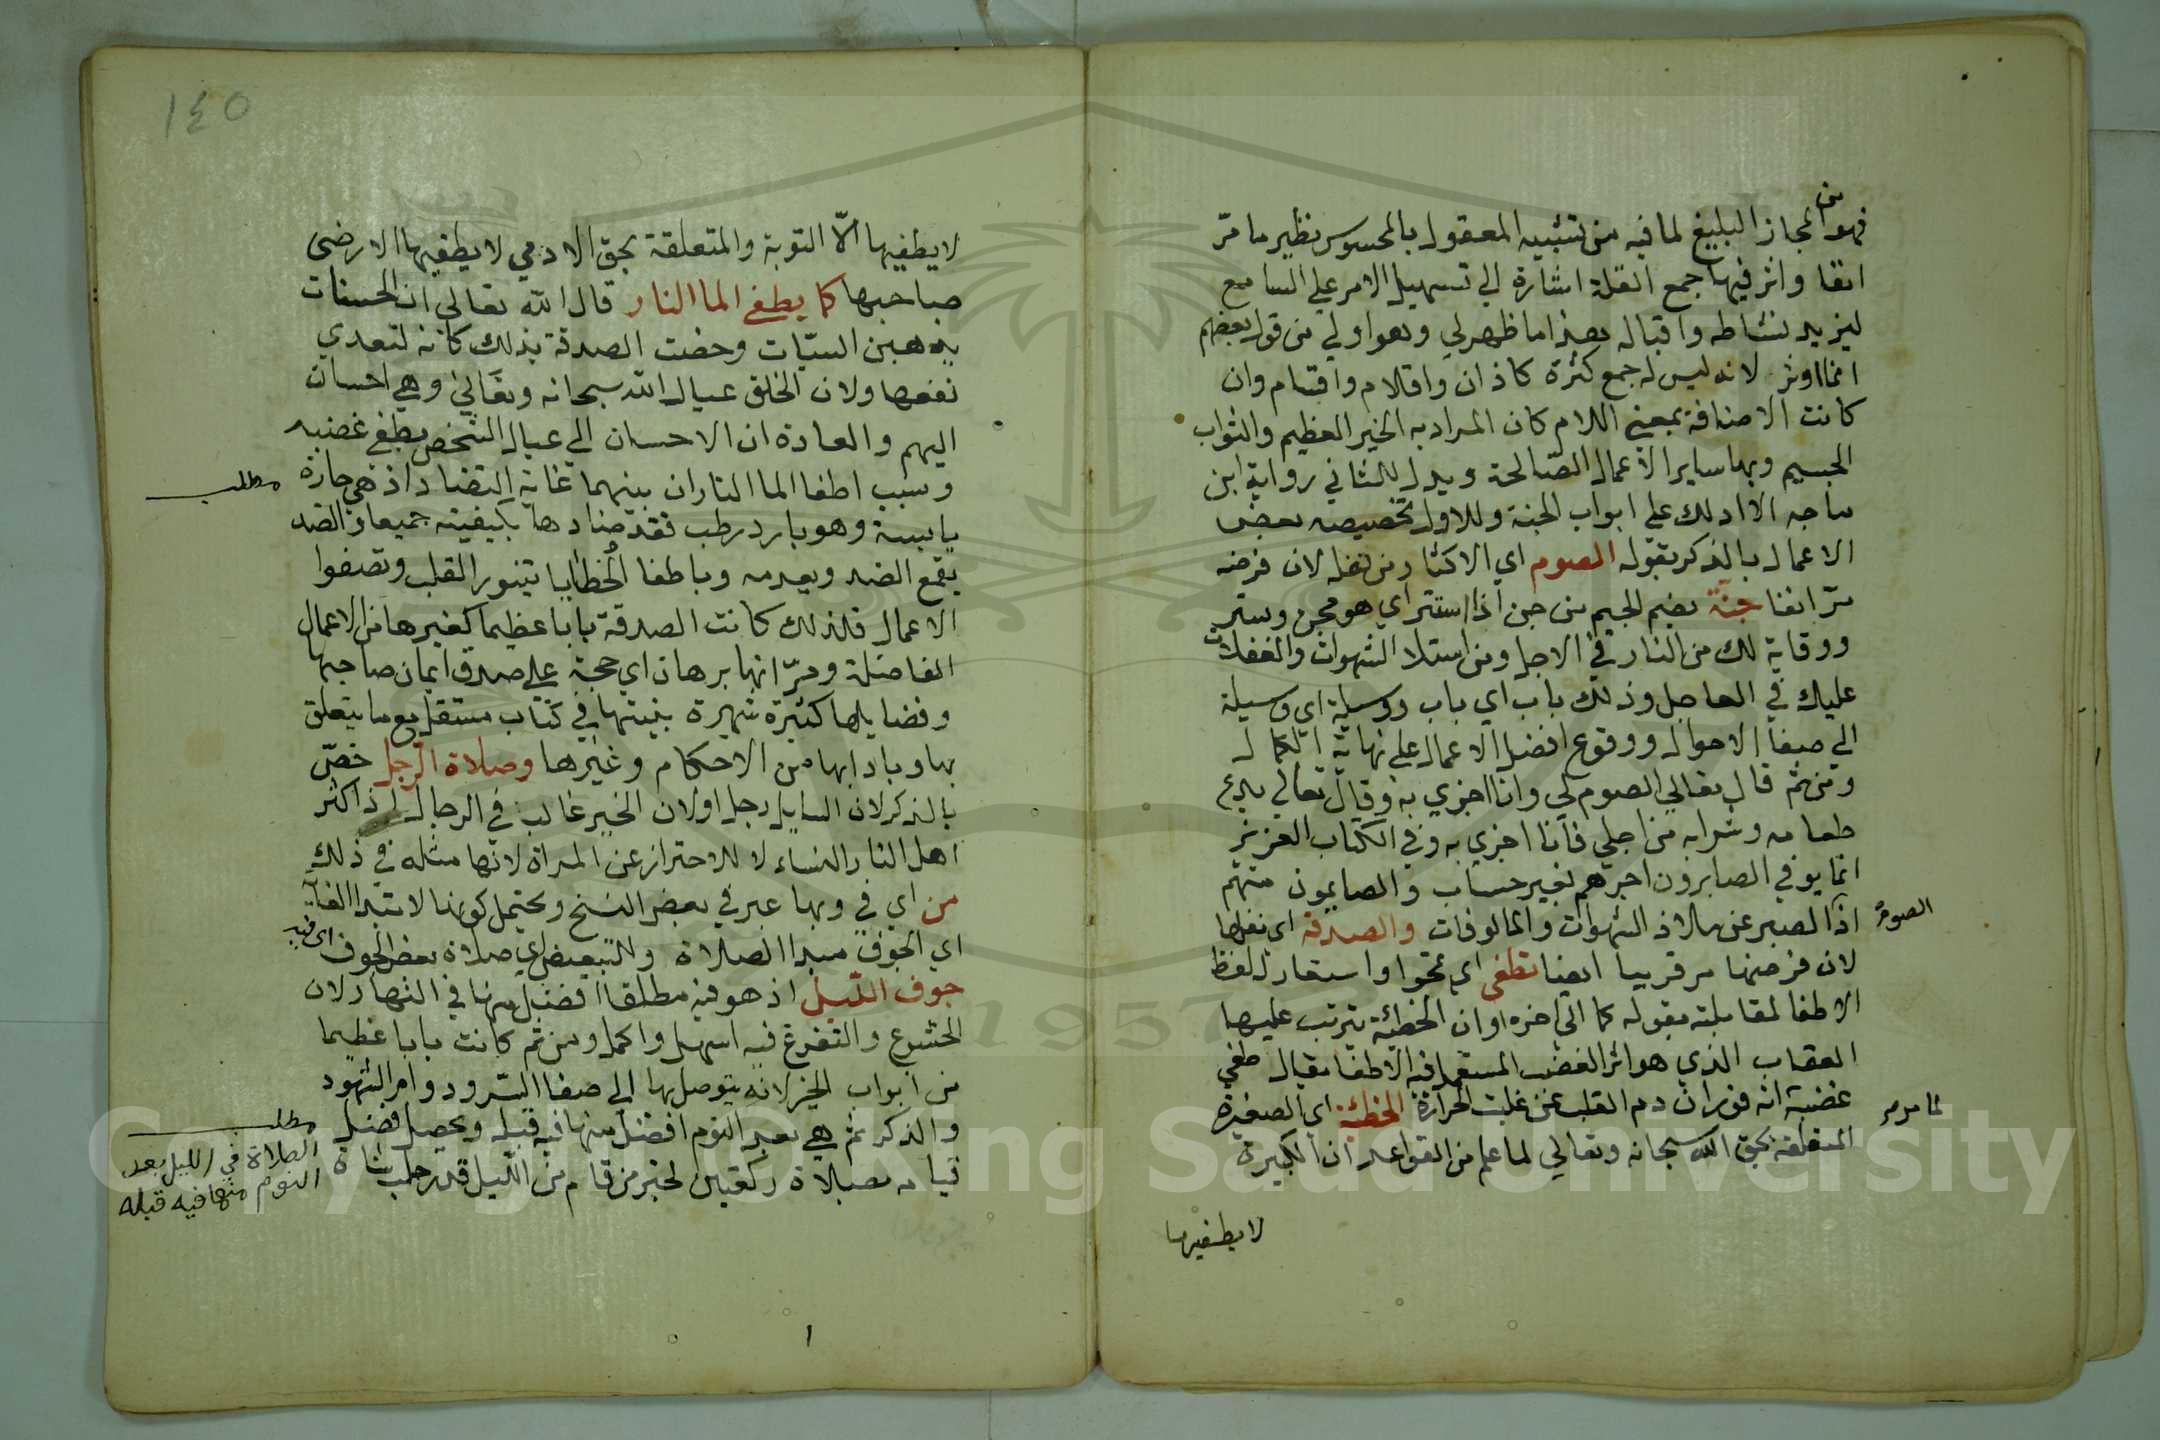 فهو من المجاز البليغ لما فيه من تشبيه المعقول بالمحسوس نظير ما مرّ
انفا واثر فيها جمع القلة اشارة الي تسهيل الامر علي السامع
ليزيد نشاطه واقباله بهذا ما ظهر لي وهو اولي من قول بعضهم
انما اوثر لانه ليس له جمع كثرة كاذان واقلام واقسام وان
كانت الاضافة بمعني اللام كان المراد به الخير العظيم والثواب
الجسيم وبها ساير الاعمال الصالحة ويدل للثاني رواية ابن
ماجه الا ادلك علي ابواب الجنة وللاول تخصيصه بعض
الاعمال بالذكر بقوله الصوم اي الاكثار من نفله لان فرضه
مرّ انفا جنّة بضم الجيم من جن اذا استتر اي هو مجن وستر
ووقاية لك من النار في الاجل ومن استلا الشهوات والغفلات
عليك في العاجل وذلك باب اي باب ووسيلة اي وسيلة
الي صفا الاحوال ووقوع افضل الاعمال علي نهاية الكمال
ومن ثم قال تعالي الصوم لي وانا اجزي به وقال تعالي يدع
طعامه وشرابه من اجلي فانا اجزي به وفي الكتاب العزيز
انما يوفي الصابرون اجرهم بغير حساب والصايمون منهم
اذ الصبر عن ملاذ الشهوات والمالوفات والصدقة اي نفلها
الصوم
لان فرضها مر قريبا ايضا تطفي اي تمحوا واستعار له لفظ
الاطفا لمقابلته بقوله كما الي اخره او ان الخطيئة يترتب عليها
العقاب الذي هو اثر الغضب المستعمل فيه الاطفا يقال طفي
غضبه انه فوران دم القلب عن غلبة الحرارة الخطيئة اي الصغيرة
لما مر مر
المتعلقة بحق الله سبحانه وتعالي لما علم من القواعد ان الكبيرة
لا يطفيها
١٤٥
لا يطفيها الاّ التوبة والمتعلقة بحق الادمي لا يطفيها الا رضي
صاحبها كما يطفي الما النار قال الله تعالي ان الحسنات
يذهبن السيّات وخصت الصدقة بذلك كانه لتعدي
نفعها ولان الخلق عيال الله سبحانه وتعالي وهي احسان
اليهم والعادة ان الاحسان الي عيال الشخص يطفي غضبه
وسبب اطفا الما النار ان بينهما غاية التضاد اذ هي حارة
مطلب
يابسة وهو بارد رطب فقد ضادها بكيفيته جميعا والضد
يقمع الضد ويعدمه وباطفا الخطايا يتنور القلب وتصفوا
الاعمال فلذلك كانت الصدقة بابا عظيما كغيرها من الاعمال
الفاضلة ومرّ انها برهان اي حجة علي صدق ايمان صاحبها
وفضايلها كثيرة شهيرة بينتها في كتاب مستقل مع ما يتعلق
بها وبادابها من الاحكام وغيرها وصلاة الرجل خصّ
بالذكر لان السايل رجل او لان الخير غالب في الرجال اذ اكثر
اهل النار النساء لا للاحتراز عن المراة لانها مثله في ذلك
من اي في وبها عبر في بعض النسخ ويحتمل كونها لابتدا الغاية
اي الجوف مبدا الصلاة وللتبعيض اي صلاة بعض الجوف اي فيه
جوف الليل اذ هو فيه مطلقا افضل منها في النهار لان
الخشوع والتفرغ فيه اسهل واكمل ومن ثم كانت بابا عظيما
من ابواب الخير لانه يتوصل بها الي صفا السّر ودوام الشهود
والذكر ثم هي بعد النوم افضل منها فيه قبله ويحصل فضل
قيامه بصلاة ركعتين لخبر من قام من الليل قدر حلب شاة
مطلب
الصلاة في الليل بعد
النوم منها فيه قبله
١
1957
Copyright © King Saud University